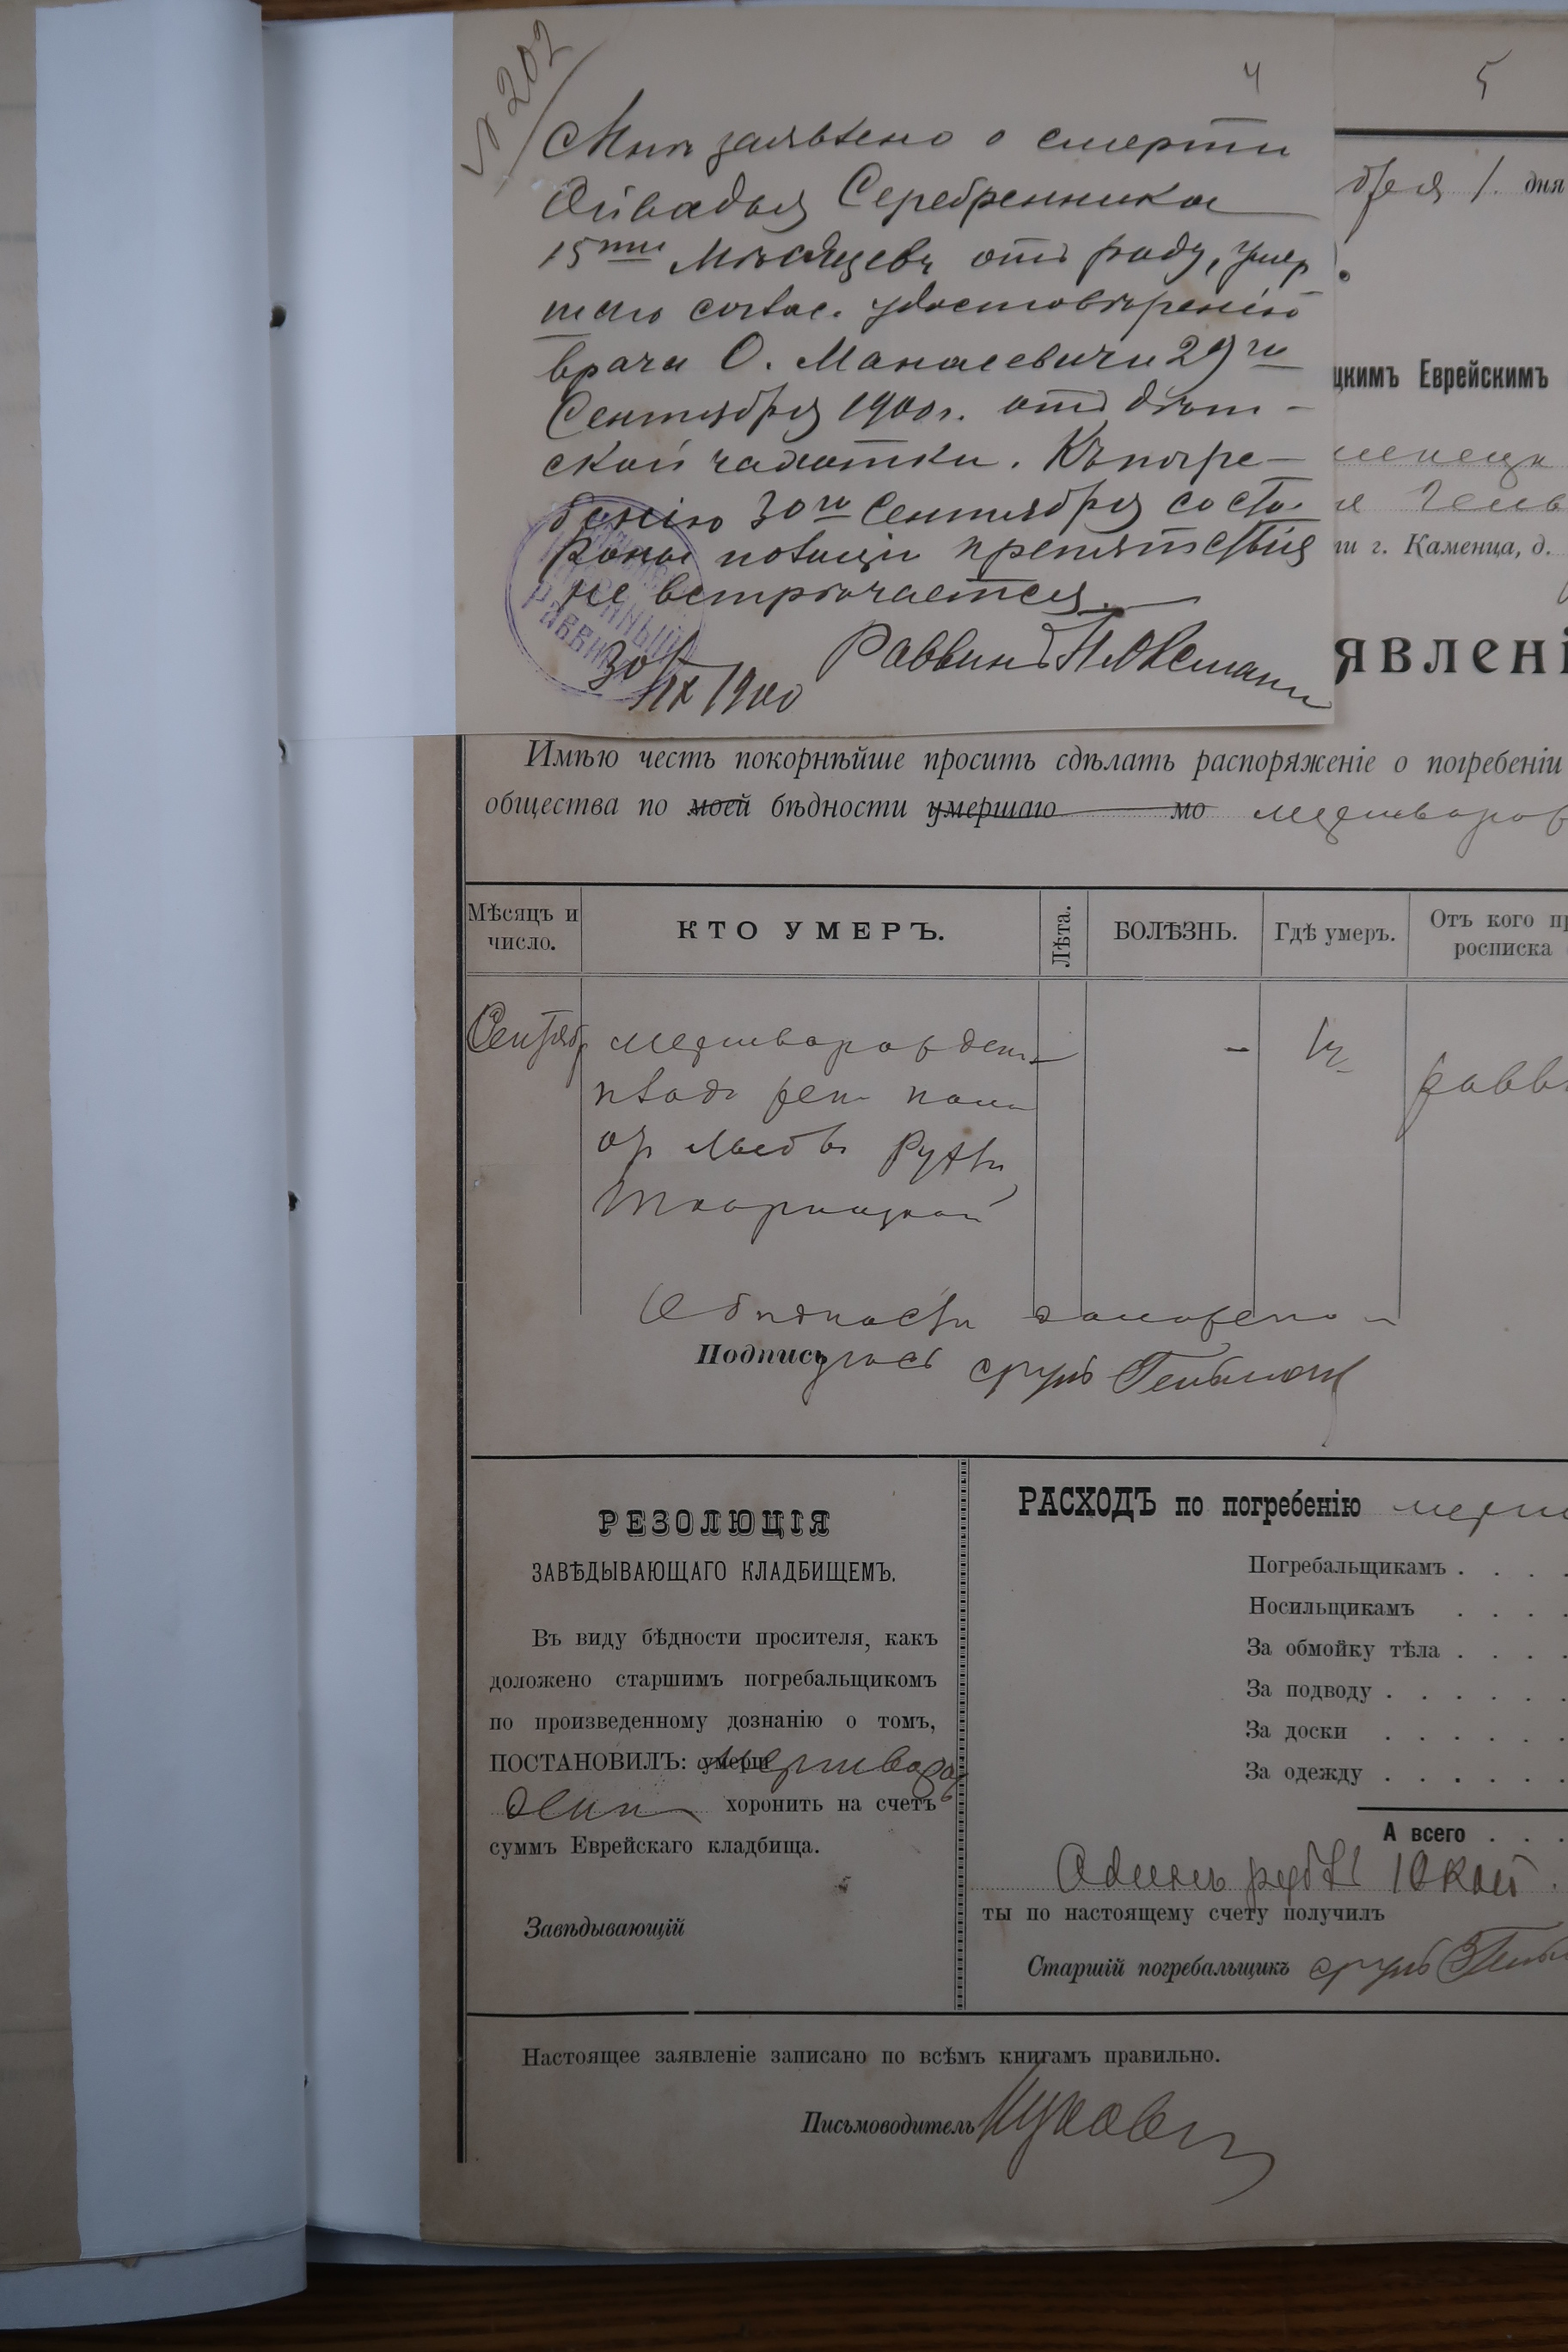 № 202
4
5
Мнѣ заявлено о смерти
Ойвадья Серебренника
15ти мѣсяцевъ отъ роду, умер
шаго соглас. удостовѣренію
врача О. Манасевича 29го
Сентября 1900г. отъ дѣт-
ской чахотки. Къ погре-
бенію 30го Сентября со сто-
роны полиціи препятствія
не встрѣчается
30/IX 1900
Раввинъ
бря 1. дня
цкимъ Еврейскимъ
ти г. Каменца, д.
явлені
Имѣю честь покорнѣйше просить сдѣлать распоряженіе о погребеніи
общества по моей бѣдности умершаго мо мертворож
Мѣсяцъ и число.
КТО УМЕРЪ.
Лѣта.
БОЛѢЗНЬ.
Гдѣ умеръ.
Отъ кого пр
росписка
Сентяб
мертворожден
плодъ
равви
Подпись
сруль Гельман
РЕЗОЛЮЦІЯ
ЗАВѢДЫВАЮЩАГО КЛАДБИЩЕМЪ.
Въ виду бѣдности просителя, какъ
доложено старшимъ погребальщикомъ
по произведенному дознанію о томъ,
ПОСТАНОВИЛЪ: умерш мертворож
ден хоронить на счетъ
суммъ Еврейскаго кладбища.
Завѣдывающій
РАСХОДЪ по погребенію мертв
Погребальщикамъ . . . .
Носильщикамъ . . . .
За обмойку тѣла . . . .
За подводу . . . . . .
За доски . . . . . .
За одежду . . . . . .
А всего . . .
Одинъ рубль 10 коп
ты по настоящему счету получилъ
Старшій погребальщикъ сруль
Настоящее заявленіе записано по всѣмъ книгамъ правильно.
Письмоводитель